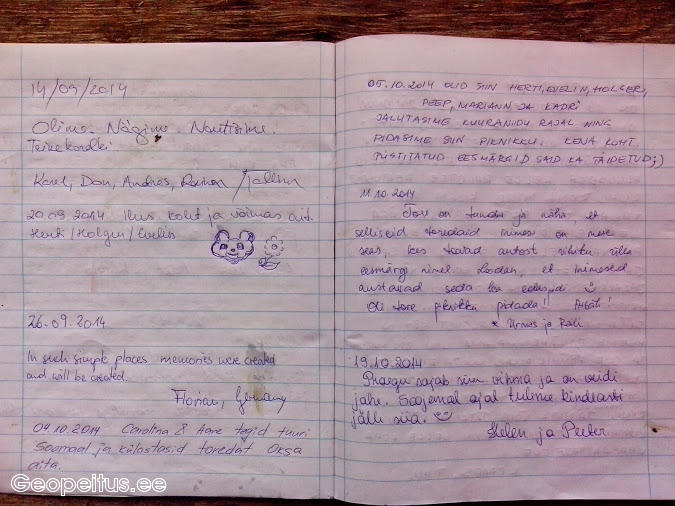 14/09/2014
Olime. Nägime. Nautisime.
Teinekordki
Karel, Dan, Andres, /Tallinn
20.09.2014 Ilus koht ja võimas ait.
Herti/Holger/Evelin
26.09.2014
In such simple places memories were created
and will be created.
Florian, Germany
04.10.2014 Carolina & Aare tegid tuuri
Soomaal ja külastasid toredat Oksa
aita.
05.10.2014 OLID SIIN HERTI, EVELIN, HOLGER,
PEEP, MARIANN JA KADRI
JALUTASIME KUURANIIDU RAJAL NING
PIDASIME SIIN PIKNIKKU. KENA KOHT.
PÜSTITATUD EESMÄRGID SAID KA TÄIDETUD ;)
11.10.2014
Tore on tunda ja näha, et
selliseid toredaid inimesi on meie
seas, kes teevad antost
eesmärgi nimel. Loodan, et inimesed
austavad seda ka edaspidi
Oli tore piknikku pidada!! Aitäh!
* Urmas ja
19.10.2014
Praegu sajab siin vihma ja on veidi
jahe. Soojemal ajal tuleme kindlasti
jälle siia.
Helen ja Peeter
Geopeitus.ee